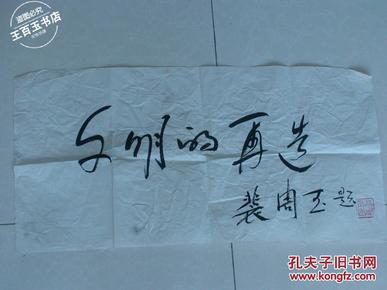 盗图必究
王百玉书店
文明的再造
裴周玉题
孔夫子旧书网